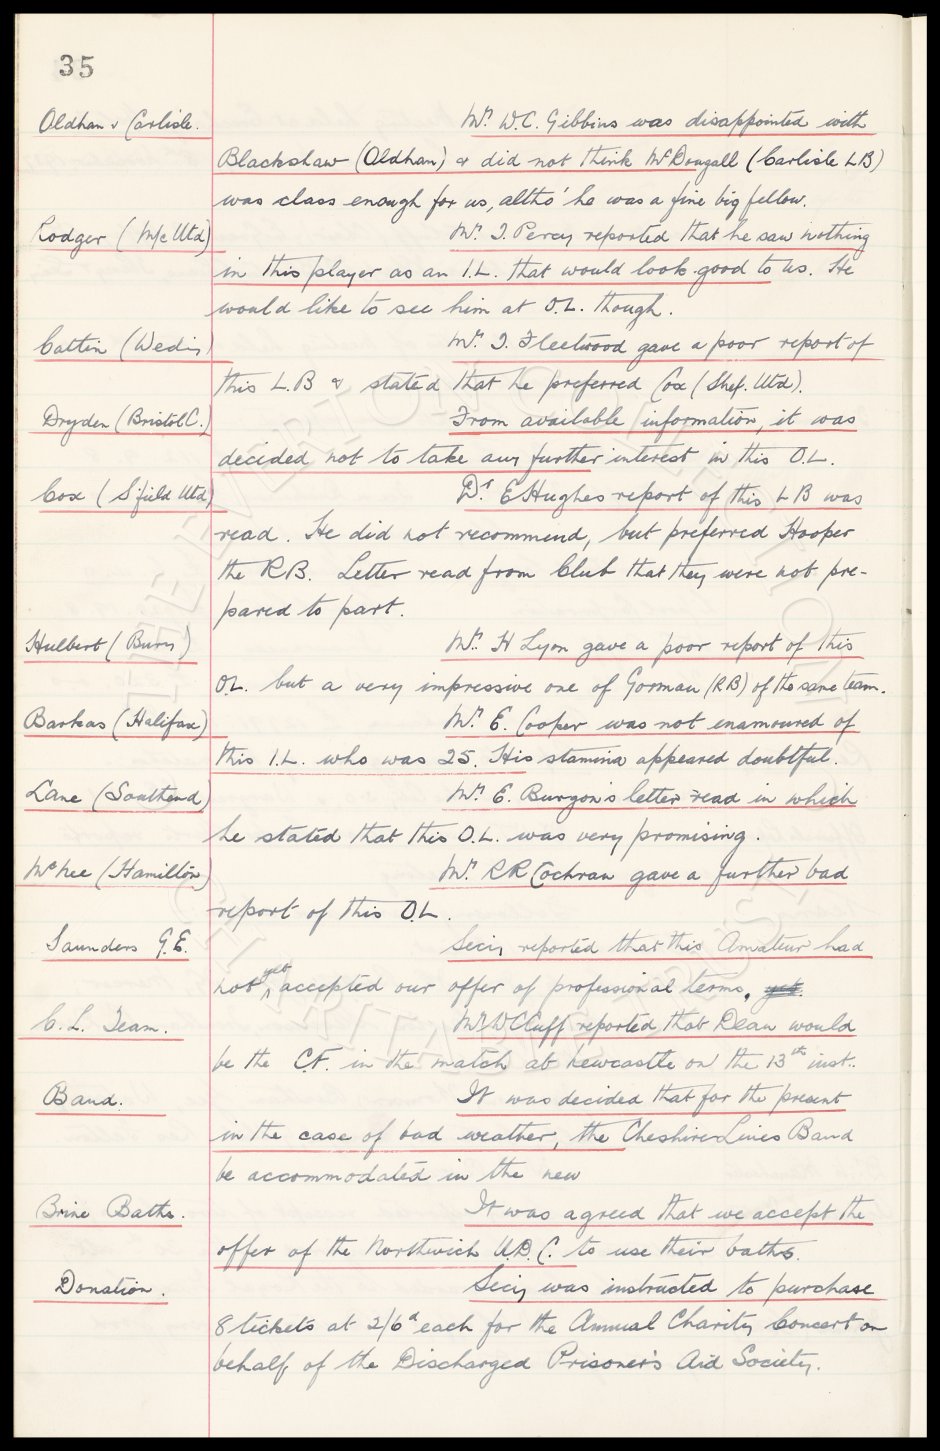 35
Oldham v Carlisle. Mr. W.C. Gibbins was disappointed with
Blackshaw (Oldham) & did not think McDougall (Carlisle LB)
was class enough for us, altho' he was a fine big fellow.
Rodger (M/c Utd) Mr. T. Percy reported that he saw nothing
in this player as an I.L. that would look good to us. He
would like to see him at O.L. though.
Cattin (Wedn'y) Mr. T. Fleetwood gave a poor report of
this L.B & stated that he preferred Cox (Shef. Utd).
Dryden (Bristol C.) From available information, it was
decided not to take any further interest in this O.L.
Cox (S'field Utd) Dr. E Hughes report of this LB was
read. He did not recommend, but preferred Hooper
the RB. Letter read from Club that they were not pre-
pared to part.
Hulbert (Bury) Mr. H Lyon gave a poor report of this
O.L. but a very impressive one of Gorman (RB) of the same team.
Barkas (Halifax) Mr. E. Cooper was not enamoured of
this I.L. who was 25. His stamina appeared doubtful.
Lane (Southend) Mr. E. Burgon's letter read in which
he stated that this O.L. was very promising.
McNee (Hamilton) Mr. RR Cochran gave a further bad
report of this O.L.
Saunders G.E. Secy reported that this Amateur had
not yet accepted our offer of professional terms. yet.
C.L. Team. Mr WCCuff reported that Dean would
be the C.F. in the match at Newcastle on the 13th inst.
Band. It was decided that for the present
in the case of bad weather, the Cheshire Lines Band
be accommodated in the new
Brine Baths. It was agreed that we accept the
offer of the Northwich U.D.C. to use their baths.
Donation. Secy was instructed to purchase
8 tickets at 2/6d each for the Annual Charity Concert on
behalf of the Discharged Prisoner's Aid Society.
THE EVERTON COLLECTION
CHARITABLE TRUST